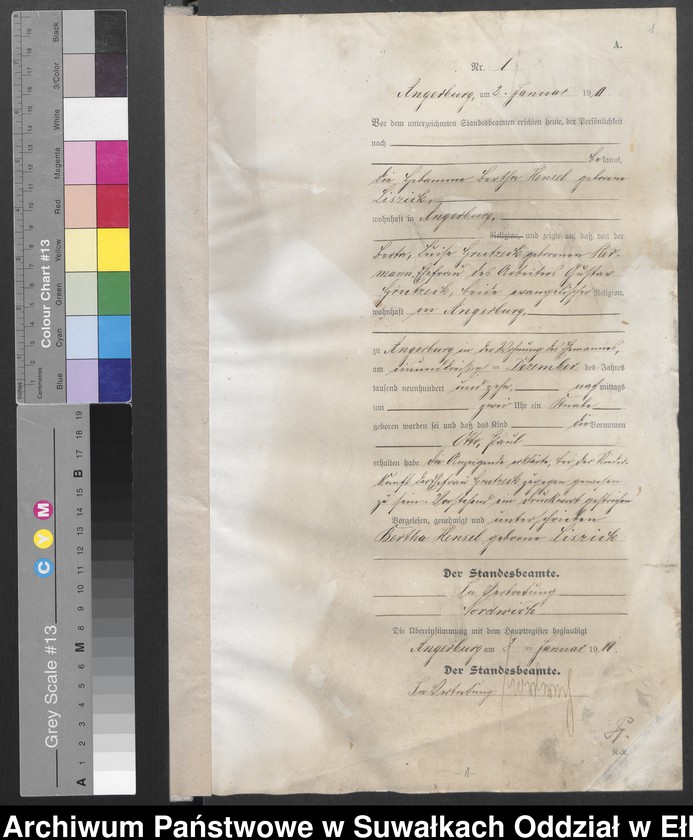 1
A.
Nr. 1
Angerburg, am 2. Januar 1911.
Vor dem unterzeichneten Standesbeamten erschien heute, der Persönlichkeit
nach
bekannt,
die Hebamme Bertha Hensel geborene
Liszick,
wohnhaft in Angerburg,
Religion, und zeigte an, daß von der
Berta, Luise Grutzeck geborenen Her-
mann, Ehefrau des Arbeiters Gustav
Grutzeck, beide evangelischer Religion,
wohnhaft in Angerburg,
zu Angerburg in der Wohnung des Ehemannes,
am einunddreißig ten Dezember des Jahres
tausend neunhundert und zehn, nachmittags
um zwei Uhr ein Knabe
geboren worden sei und daß das Kind die Vornamen
Otto, Paul
erhalten habe. Die Anzeigende erklärte, bei der Nieder-
kunft der Ehefrau Grutzeck zugegen gewesen
zu sein. Vorstehend ein Druckwort gestrichen
Vorgelesen, genehmigt und unterschrieben
Bertha Hensel geborene Liszick
Der Standesbeamte.
In Vertretung
Die Übereinstimmung mit dem Hauptregister beglaubigt
Angerburg am 2 ten Januar 1911.
Der Standesbeamte.
In Vertretung
-1-
Colour Chart #13
Blue
Cyan
Green
Yellow
Red
Magenta
White
3/Color
Black
Inches
Centimetres
Grey Scale #13
C Y M
A 1 2 3 4 5 6 M 8 9 10 11 12 13 14 15 B 17 18 19
Archiwum Państwowe w Suwałkach Oddział w Eł